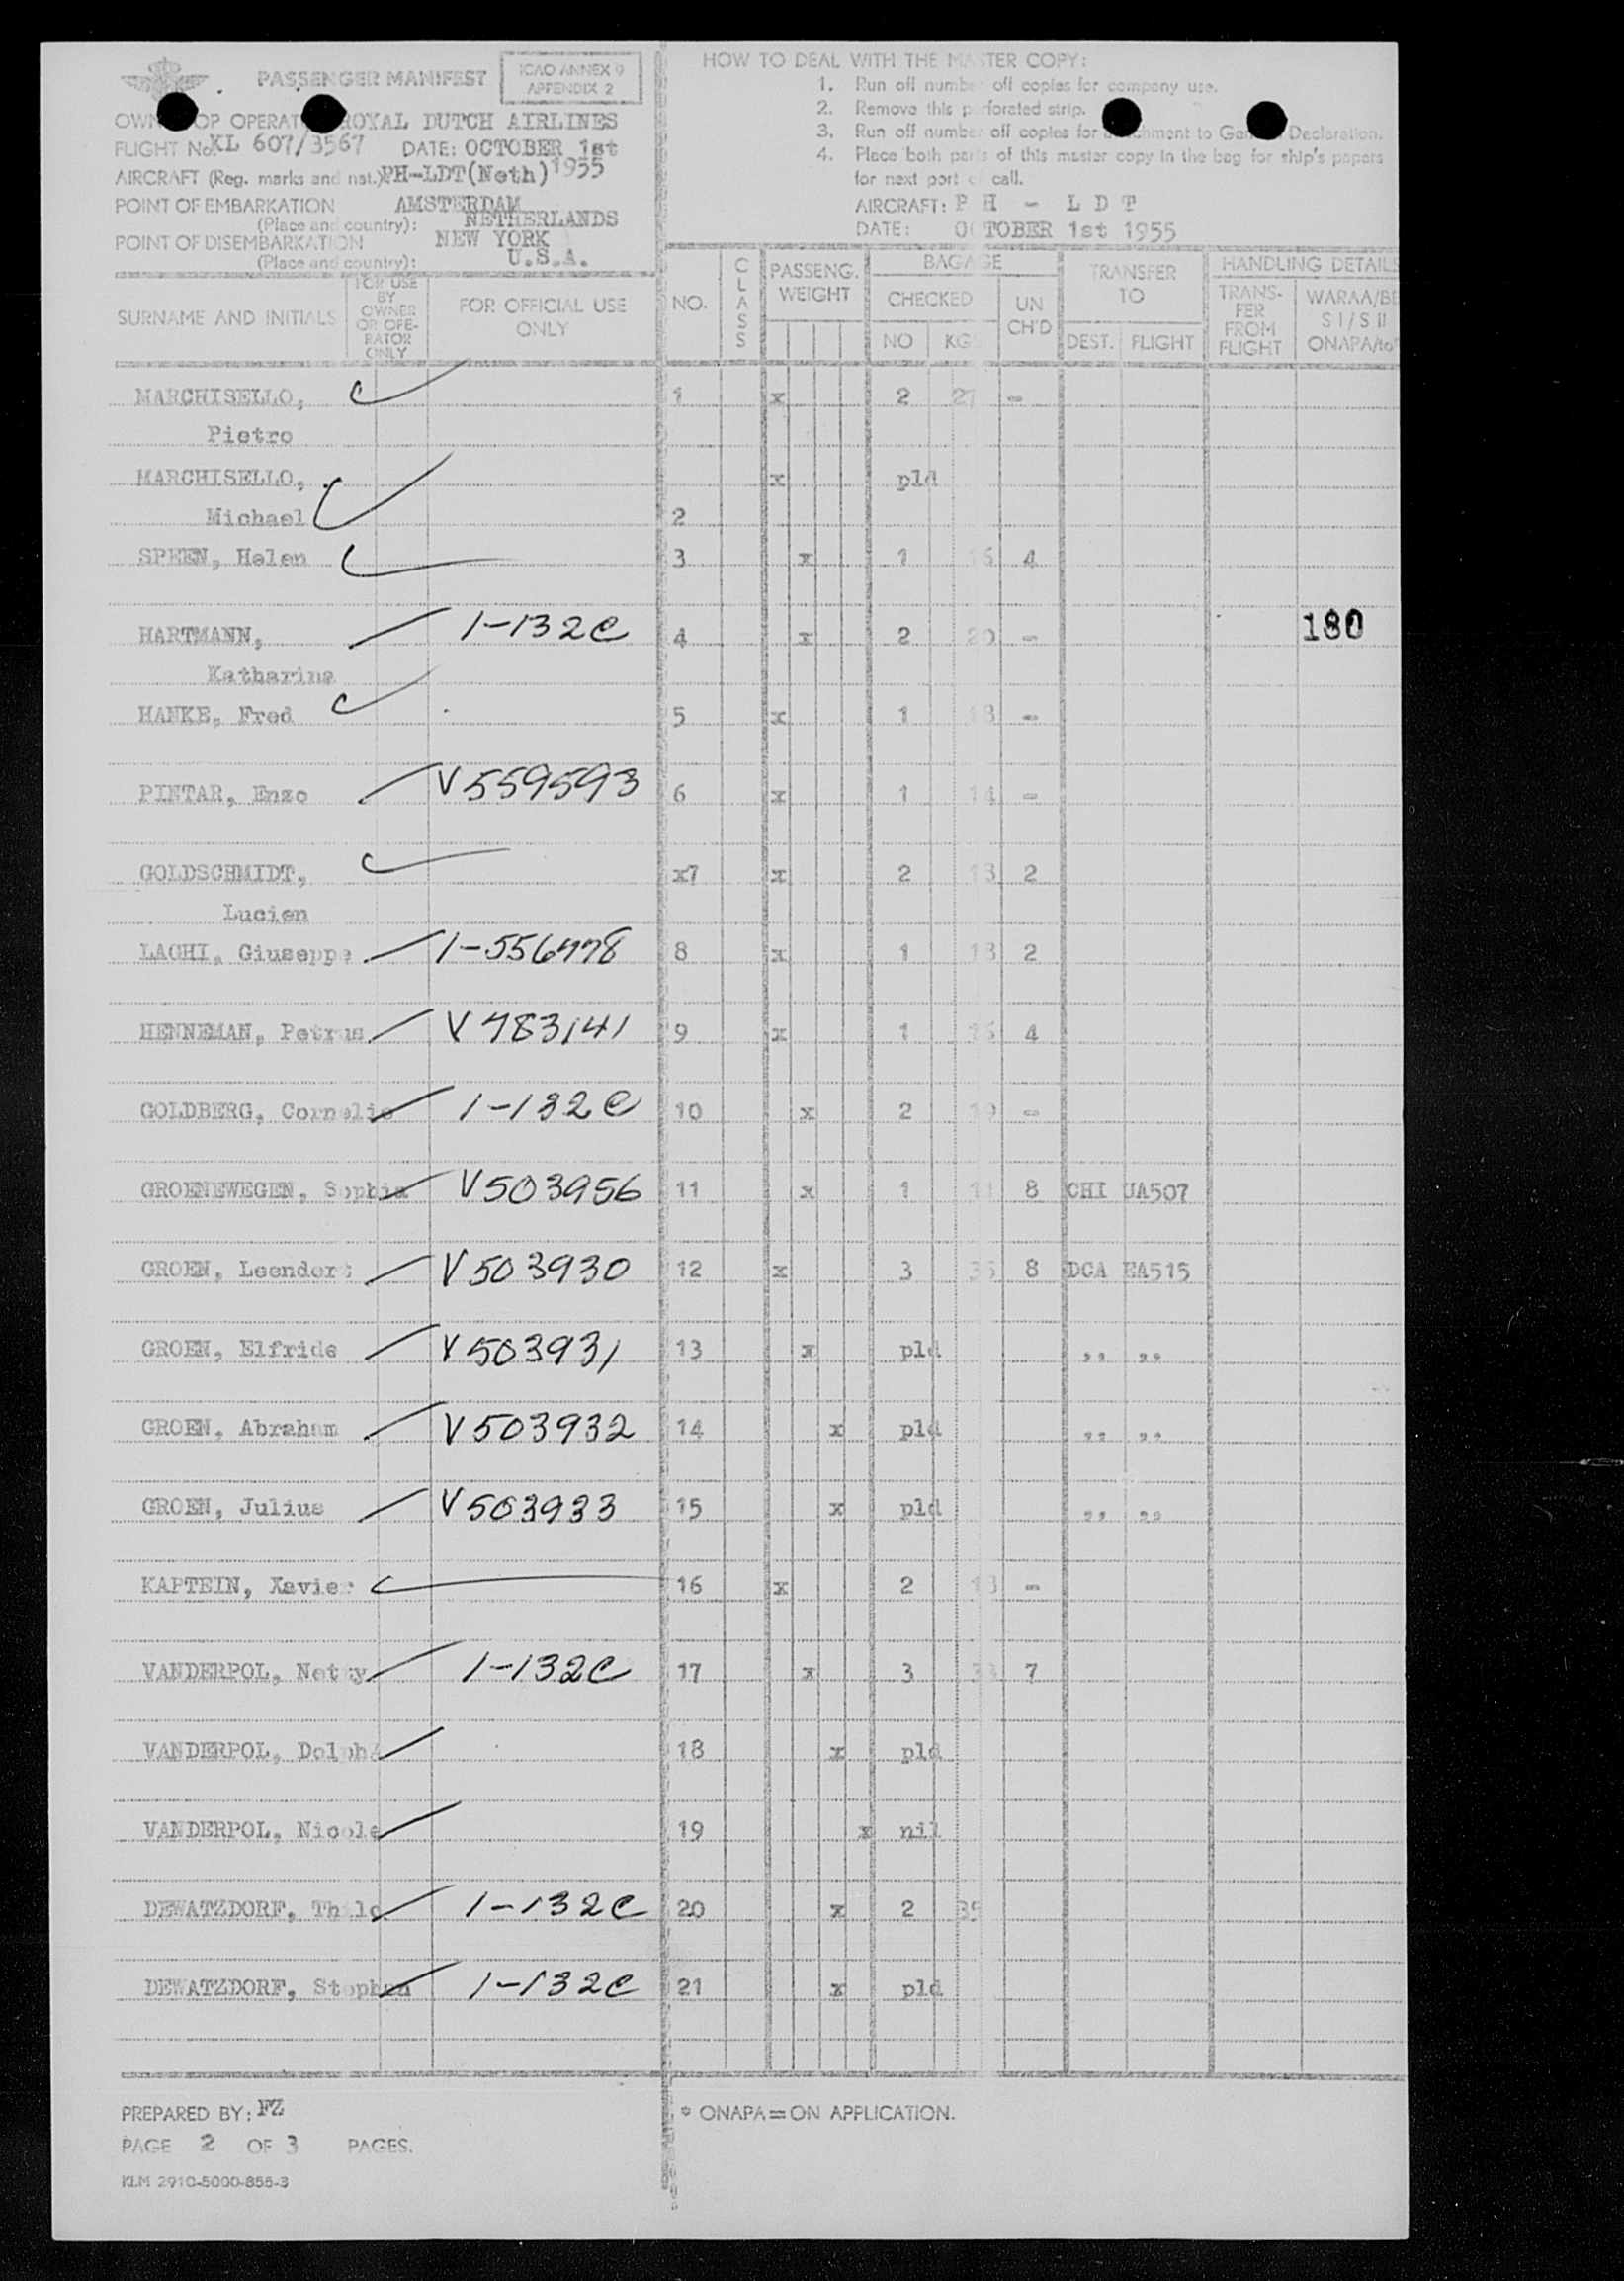 PASSENGER MANIFEST
ICAO ANNEX 9
APPENDIX 2
ROYAL DUTCH AIRLINES
FLIGHT No. KL 607/3567 DATE: OCTOBER 1st 1955
AIRCRAFT (Reg. marks and nat.) PH-LDT(Neth)
POINT OF EMBARKATION AMSTERDAM
(Place and country): NETHERLANDS
POINT OF DISEMBARKATION NEW YORK
(Place and country): U.S.A.
HOW TO DEAL WITH THE MASTER COPY:
1. Run off number off copies for company use.
2. Remove this perforated strip.
3. Run off number off copies for Declaration.
4. Place both parts of this master copy in the bag for ship's papers
for next port of call.
AIRCRAFT: P H - L D T
DATE: OCTOBER 1st 1955
SURNAME AND INITIALS
FOR USE BY OWNER OR OPE-RATOR ONLY
FOR OFFICIAL USE ONLY
NO.
CLASS
PASSENG. WEIGHT
BAGAGE
CHECKED
NO KG
UN CH'D
TRANSFER TO
DEST. FLIGHT
HANDLING DETAILS
TRANS-FER FROM FLIGHT
WARAA/
S I / S II
ONAPA/
MARCHISELLO, 1 x 2 27 -
Pietro
MARCHISELLO, x pld
Michael 2
SPEEN, Helen 3 x 1 4
HARTMANN, 1-132C 4 x 2 20 - 180
Katharina
HANKE, Fred 5 x 1 -
PINTAR, Enzo V559593 6 x 1 14 -
GOLDSCHMIDT, x7 x 2 2
Lucien
LAGHI, Giuseppe 1-556778 8 x 1 2
HENNEMAN, Petrus V783141 9 x 1 4
GOLDBERG, Cornelis 1-132C 10 x 2 19 -
GROENEWEGEN, Sophia V503956 11 x 1 8 CHI UA507
GROEN, Leendert V503930 12 x 3 8 DCA EA515
GROEN, Elfride V503931 13 x pld ,, ,,
GROEN, Abraham V503932 14 x pld ,, ,,
GROEN, Julius V503933 15 x pld ,, ,,
KAPTEIN, Xavier 16 x 2 -
VANDERPOL, Netty 1-132C 17 x 3 7
VANDERPOL, 18 x pld
VANDERPOL, Nicole 19 x nil
DEWATZDORF, Thilo 1-132C 20 x 2
DEWATZDORF, Stephan 1-132C 21 x pld
PREPARED BY: FZ
PAGE 2 OF 3 PAGES.
KLM 2910-5000-855-3
* ONAPA=ON APPLICATION.